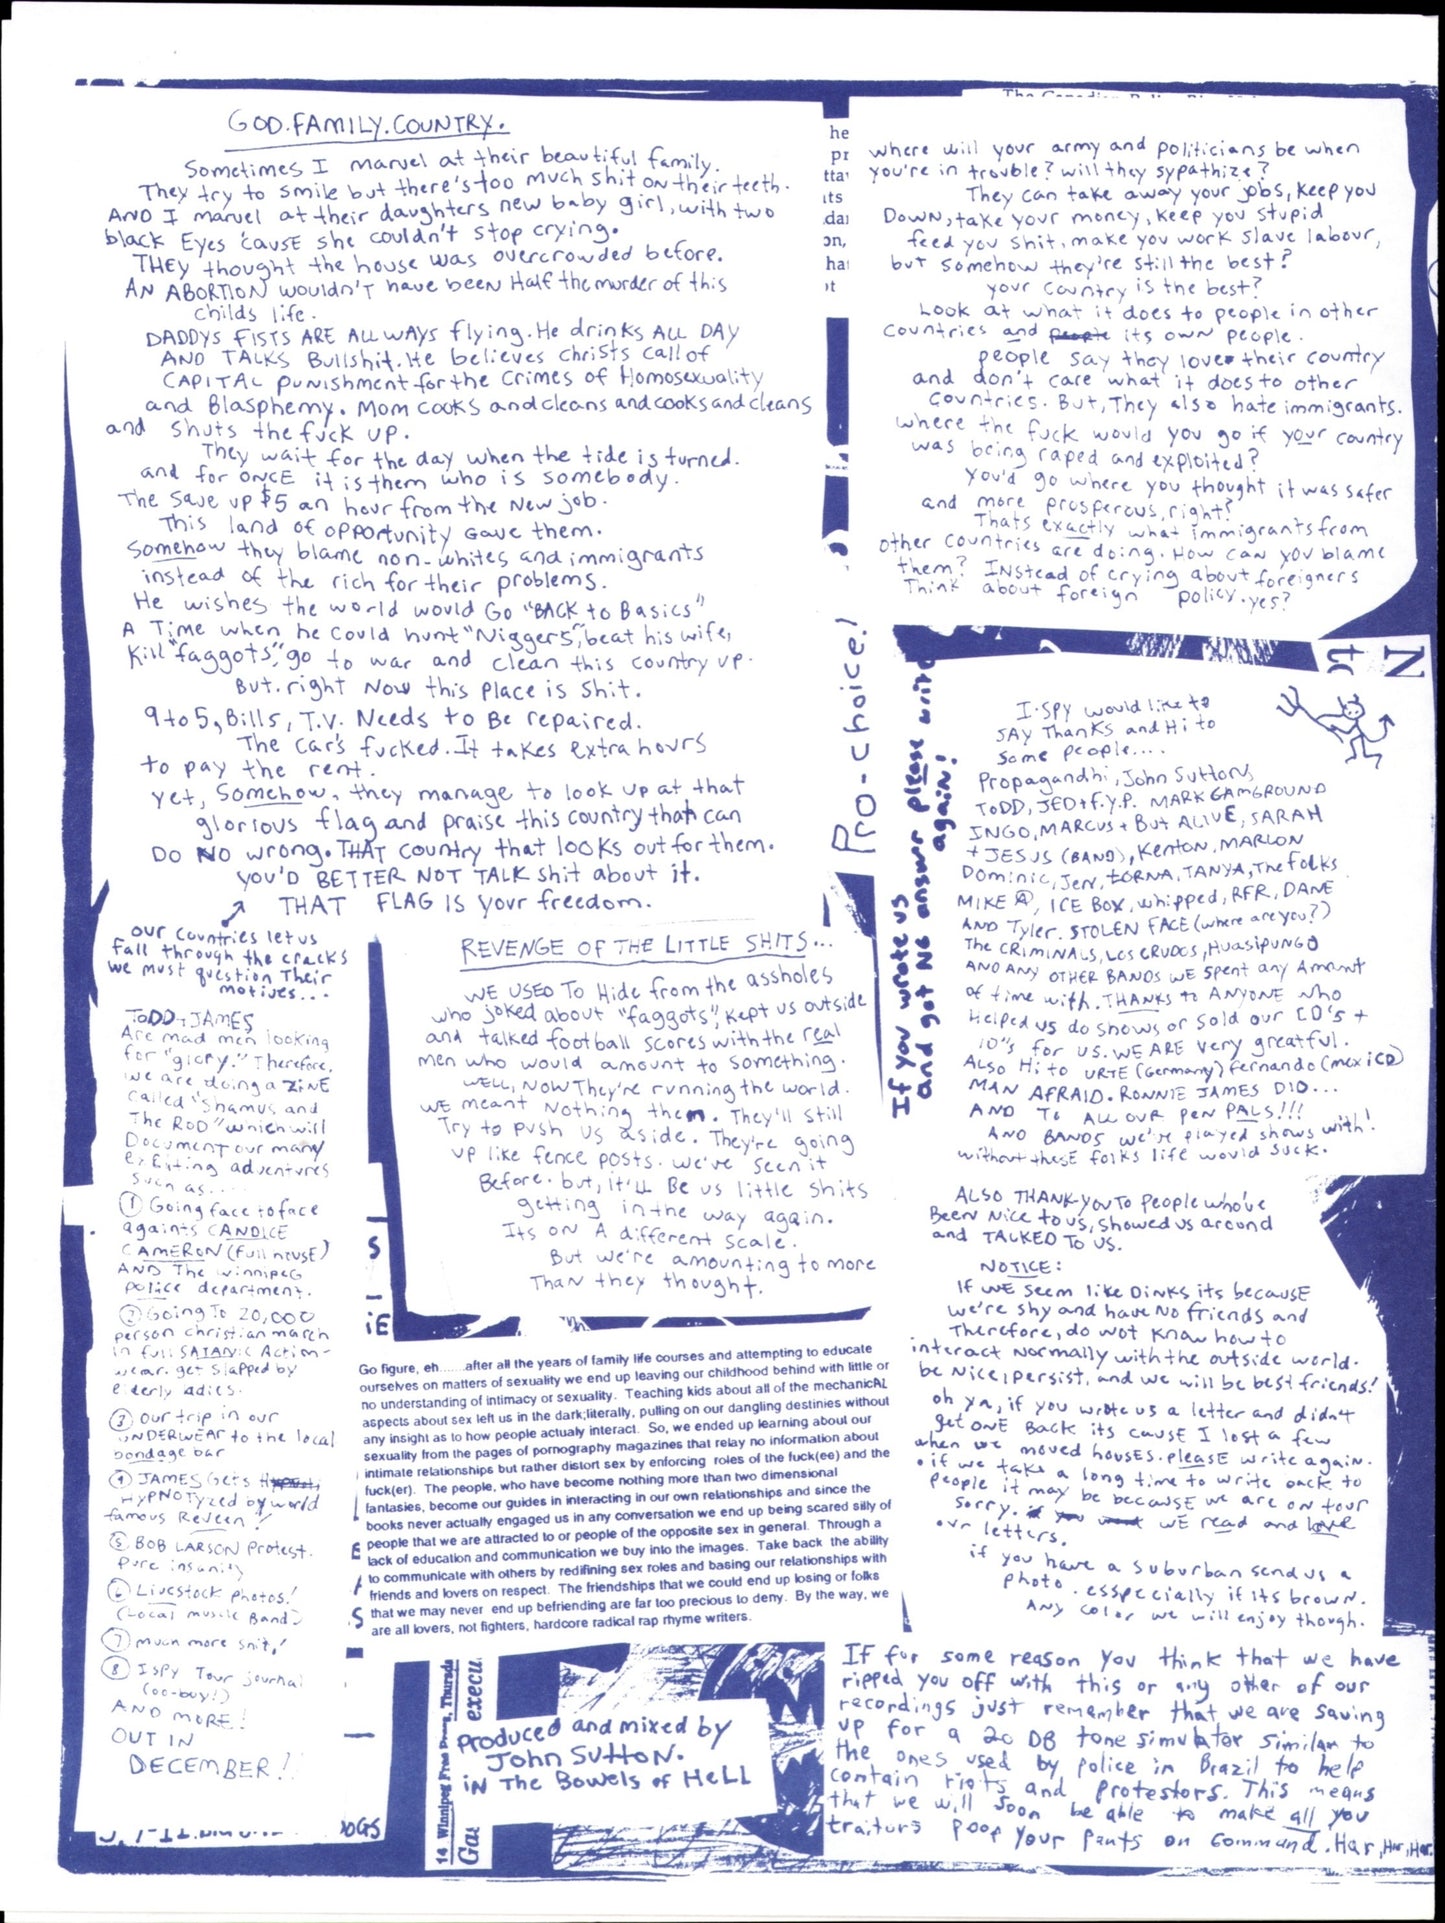 GOD.FAMILY.COUNTRY.
Sometimes I marvel at their beautiful family.
They try to smile but there's too much shit on their teeth.
AND I marvel at their daughters new baby girl, with two
black Eyes 'cause she couldn't stop crying.
THEY thought the house was overcrowded before.
AN ABORTION wouldn't have been Half the murder of this
childs life.
DADDYS FISTS ARE ALLWAYS flying. He drinks ALL DAY
AND TALKS Bullshit. He believes christs call of
CAPITAL punishment for the crimes of Homosexuality
and Blasphemy. Mom cooks and cleans and cooks and cleans
and shuts the fuck up.
They wait for the day when the tide is turned.
and for ONCE it is them who is somebody.
The save up $5 an hour from the New job.
This land of opportunity Gave them.
Somehow they blame non-whites and immigrants
instead of the rich for their problems.
He wishes the world would Go "BACK to Basics"
A Time when he could hunt "Niggers", beat his wife,
Kill "faggots", go to war and clean this country up.
But. right Now this place is shit.
9 to 5, Bills, T.V. Needs to Be repaired.
The car's fucked. It takes extra hours
to pay the rent.
yet, Somehow, they manage to look up at that
glorious flag and praise this country that can
DO NO wrong. THAT country that looks out for them.
YOU'D BETTER NOT TALK shit about it.
THAT FLAG IS your freedom.
our countries let us
fall through the cracks
we must question Their
motives...
TODD + JAMES
Are mad men looking
for "glory." Therefore,
we are doing a ZINE
called "Shamus and
The ROD" which will
Document our many
exciting adventures
such as....
① Going face to face
againts CANDICE
CAMERON (full house)
AND The winnipeg
police department.
② Going To 20,000
person christian march
in full SATANIC Action-
wear. get slapped by
elderly adies.
③ our trip in our
UNDERWEAR to the local
bondage bar
④ JAMES Gets
HYPNOTyzed by world
famous Reveen!
⑤ BOB LARSON Protest.
Pure insanity
⑥ Livestock photos!
(Local music Band)
⑦ much more shit!
⑧ ISPY Tour journal
(oo-boy!)
AND MORE!
OUT IN
DECEMBER!!
REVENGE OF THE LITTLE SHITS...
WE USED TO Hide from the assholes
who joked about "faggots", kept us outside
and talked football scores with the real
men who would amount to something.
WELL, NOW They're running the world.
WE meant Nothing them. They'll still
Try to push us aside. They're going
up like fence posts. we've seen it
Before. but, it'll Be us little shits
getting in the way again.
Its on A different scale.
But we're amounting to more
Than they thought.
Go figure, eh......after all the years of family life courses and attempting to educate
ourselves on matters of sexuality we end up leaving our childhood behind with little or
no understanding of intimacy or sexuality. Teaching kids about all of the mechanicAL
aspects about sex left us in the dark;literally, pulling on our dangling destinies without
any insight as to how people actualy interact. So, we ended up learning about our
sexuality from the pages of pornography magazines that relay no information about
intimate relationships but rather distort sex by enforcing roles of the fuck(ee) and the
fuck(er). The people, who have become nothing more than two dimensional
fantasies, become our guides in interacting in our own relationships and since the
books never actually engaged us in any conversation we end up being scared silly of
people that we are attracted to or people of the opposite sex in general. Through a
lack of education and communication we buy into the images. Take back the ability
to communicate with others by redifining sex roles and basing our relationships with
friends and lovers on respect. The friendships that we could end up losing or folks
that we may never end up befriending are far too precious to deny. By the way, we
are all lovers, not fighters, hardcore radical rap rhyme writers.
14 Winnipeg Free Press, Thursda
Gas execu
Produced and mixed by
John SUTTON.
iN The Bowels of HELL
where will your army and politicians be when
you're in trouble? will they sypathize?
They can take away your jobs, keep you
Down, take your money, keep you stupid
feed you shit, make you work slave labour,
but somehow they're still the best?
your country is the best?
Look at what it does to people in other
countries and its own people.
people say they love their country
and don't care what it does to other
countries. But, They also hate immigrants.
where the fuck would you go if your country
was being raped and exploited?
You'd go where you thought it was safer
and more prosperous, right?
Thats exactly what immigrants from
other countries are doing. How can you blame
them? INstead of crying about foreigners
Think about foreign policy. yes?
Pro-choice!
If you wrote us
and got No answer please write
again!
I.SPY would like to
SAY Thanks and Hi to
some people....
Propagandhi, John Sutton,
TODD, JED + F.Y.P. MARK GAMGROUND
INGO, MARCUS + But ALIVE, SARAH
+ JESUS (BAND), Kenton, MARLON
Dominic, Jen, LORNA, TANYA, The folks
MIKE Ⓐ, ICE BOX, whipped, RFR, DANE
AND Tyler. STOLEN FACE (where are you?)
The CRIMINALS, LOS CRUDOS, HUASIPUNGO
AND ANY OTHER BANDS WE Spent any Amount
of time with. THANKS to ANYONE who
Helped us do shows or sold our CD'S +
10"s for us. WE ARE very greatful.
Also Hi to URTE (Germany) fernando (mexico)
MAN AFRAID. RONNIE JAMES DIO...
AND To ALL OUR PEN PALS!!!
AND BANDS we've played shows with!
without thesE folks life would suck.
ALSO THANK-YOU TO People who've
BEEN Nice to us, showed us around
and TALKED To us.
NOTICE:
If WE seem like DINKS its becausE
we're shy and have No friends and
Therefore, do not know how to
interact Normally with the outside world.
be Nice, persist, and we will be best friends!
oh ya, if you wrote us a letter and didn't
get ONE Back its cause I lost a few
when we moved houses. pleasE write again.
• if we take a long time to write back to
people it may be becausE we are on tour
sorry. WE read and love
our letters.
if you have a suburban send us a
photo. esspecially if its brown.
Any color we will enjoy though.
IF for some reason you think that we have
ripped you off with this or any other of our
recordings just remember that we are saving
up for a 20 DB tone simulator similar to
the ones used by police in Brazil to help
contain riots and protestors. This means
that we will soon be able to make all you
traitors poop your pants on command. Har, Har, Har.